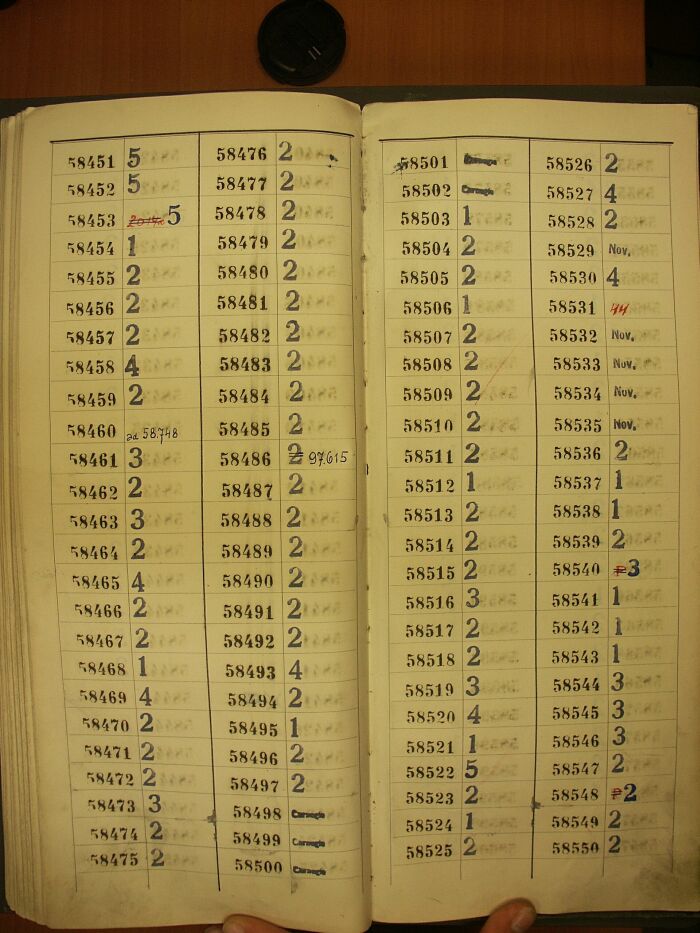 58451 5
58452 5
58453 5
58454 1
58455 2
58456 2
58457 2
58458 4
58459 2
58460 ad 58,748
58461 3
58462 2
58463 3
58464 2
58465 4
58466 2
58467 2
58468 1
58469 4
58470 2
58471 2
58472 2
58473 3
58474 2
58475 2
58476 2
58477 2
58478 2
58479 2
58480 2
58481 2
58482 2
58483 2
58484 2
58485 2
58486 2 97.615
58487 2
58488 2
58489 2
58490 2
58491 2
58492 2
58493 4
58494 2
58495 1
58496 2
58497 2
58498 Carnegie
58499 Carnegie
58500 Carnegie
58501 Carnegie
58502 Carnegie
58503 1
58504 2
58505 2
58506 1
58507 2
58508 2
58509 2
58510 2
58511 2
58512 1
58513 2
58514 2
58515 2
58516 3
58517 2
58518 2
58519 3
58520 4
58521 1
58522 5
58523 2
58524 1
58525 2
58526 2
58527 4
58528 2
58529 Nov.
58530 4
58531 44
58532 Nov.
58533 Nov.
58534 Nov.
58535 Nov.
58536 2
58537 1
58538 1
58539 2
58540 P 3
58541 1
58542 1
58543 1
58544 3
58545 3
58546 3
58547 2
58548 P 2
58549 2
58550 2